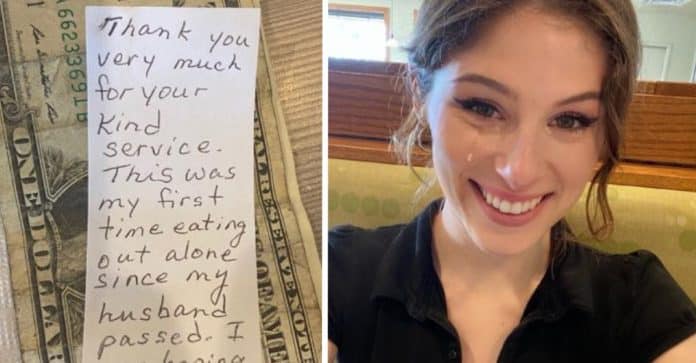 Thank you
very much
for your
kind
service.
This was
my first
time eating
out alone
since my
husband
passed. I
A66233691B
ONE DOLLAR